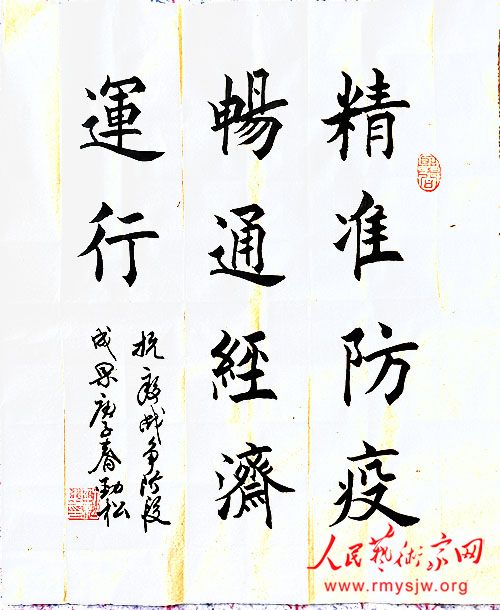 精准防疫
暢通經濟
運行
抗疫战争阶段
成果庚子春劲松
人民藝術家网
www.rmysjw.org